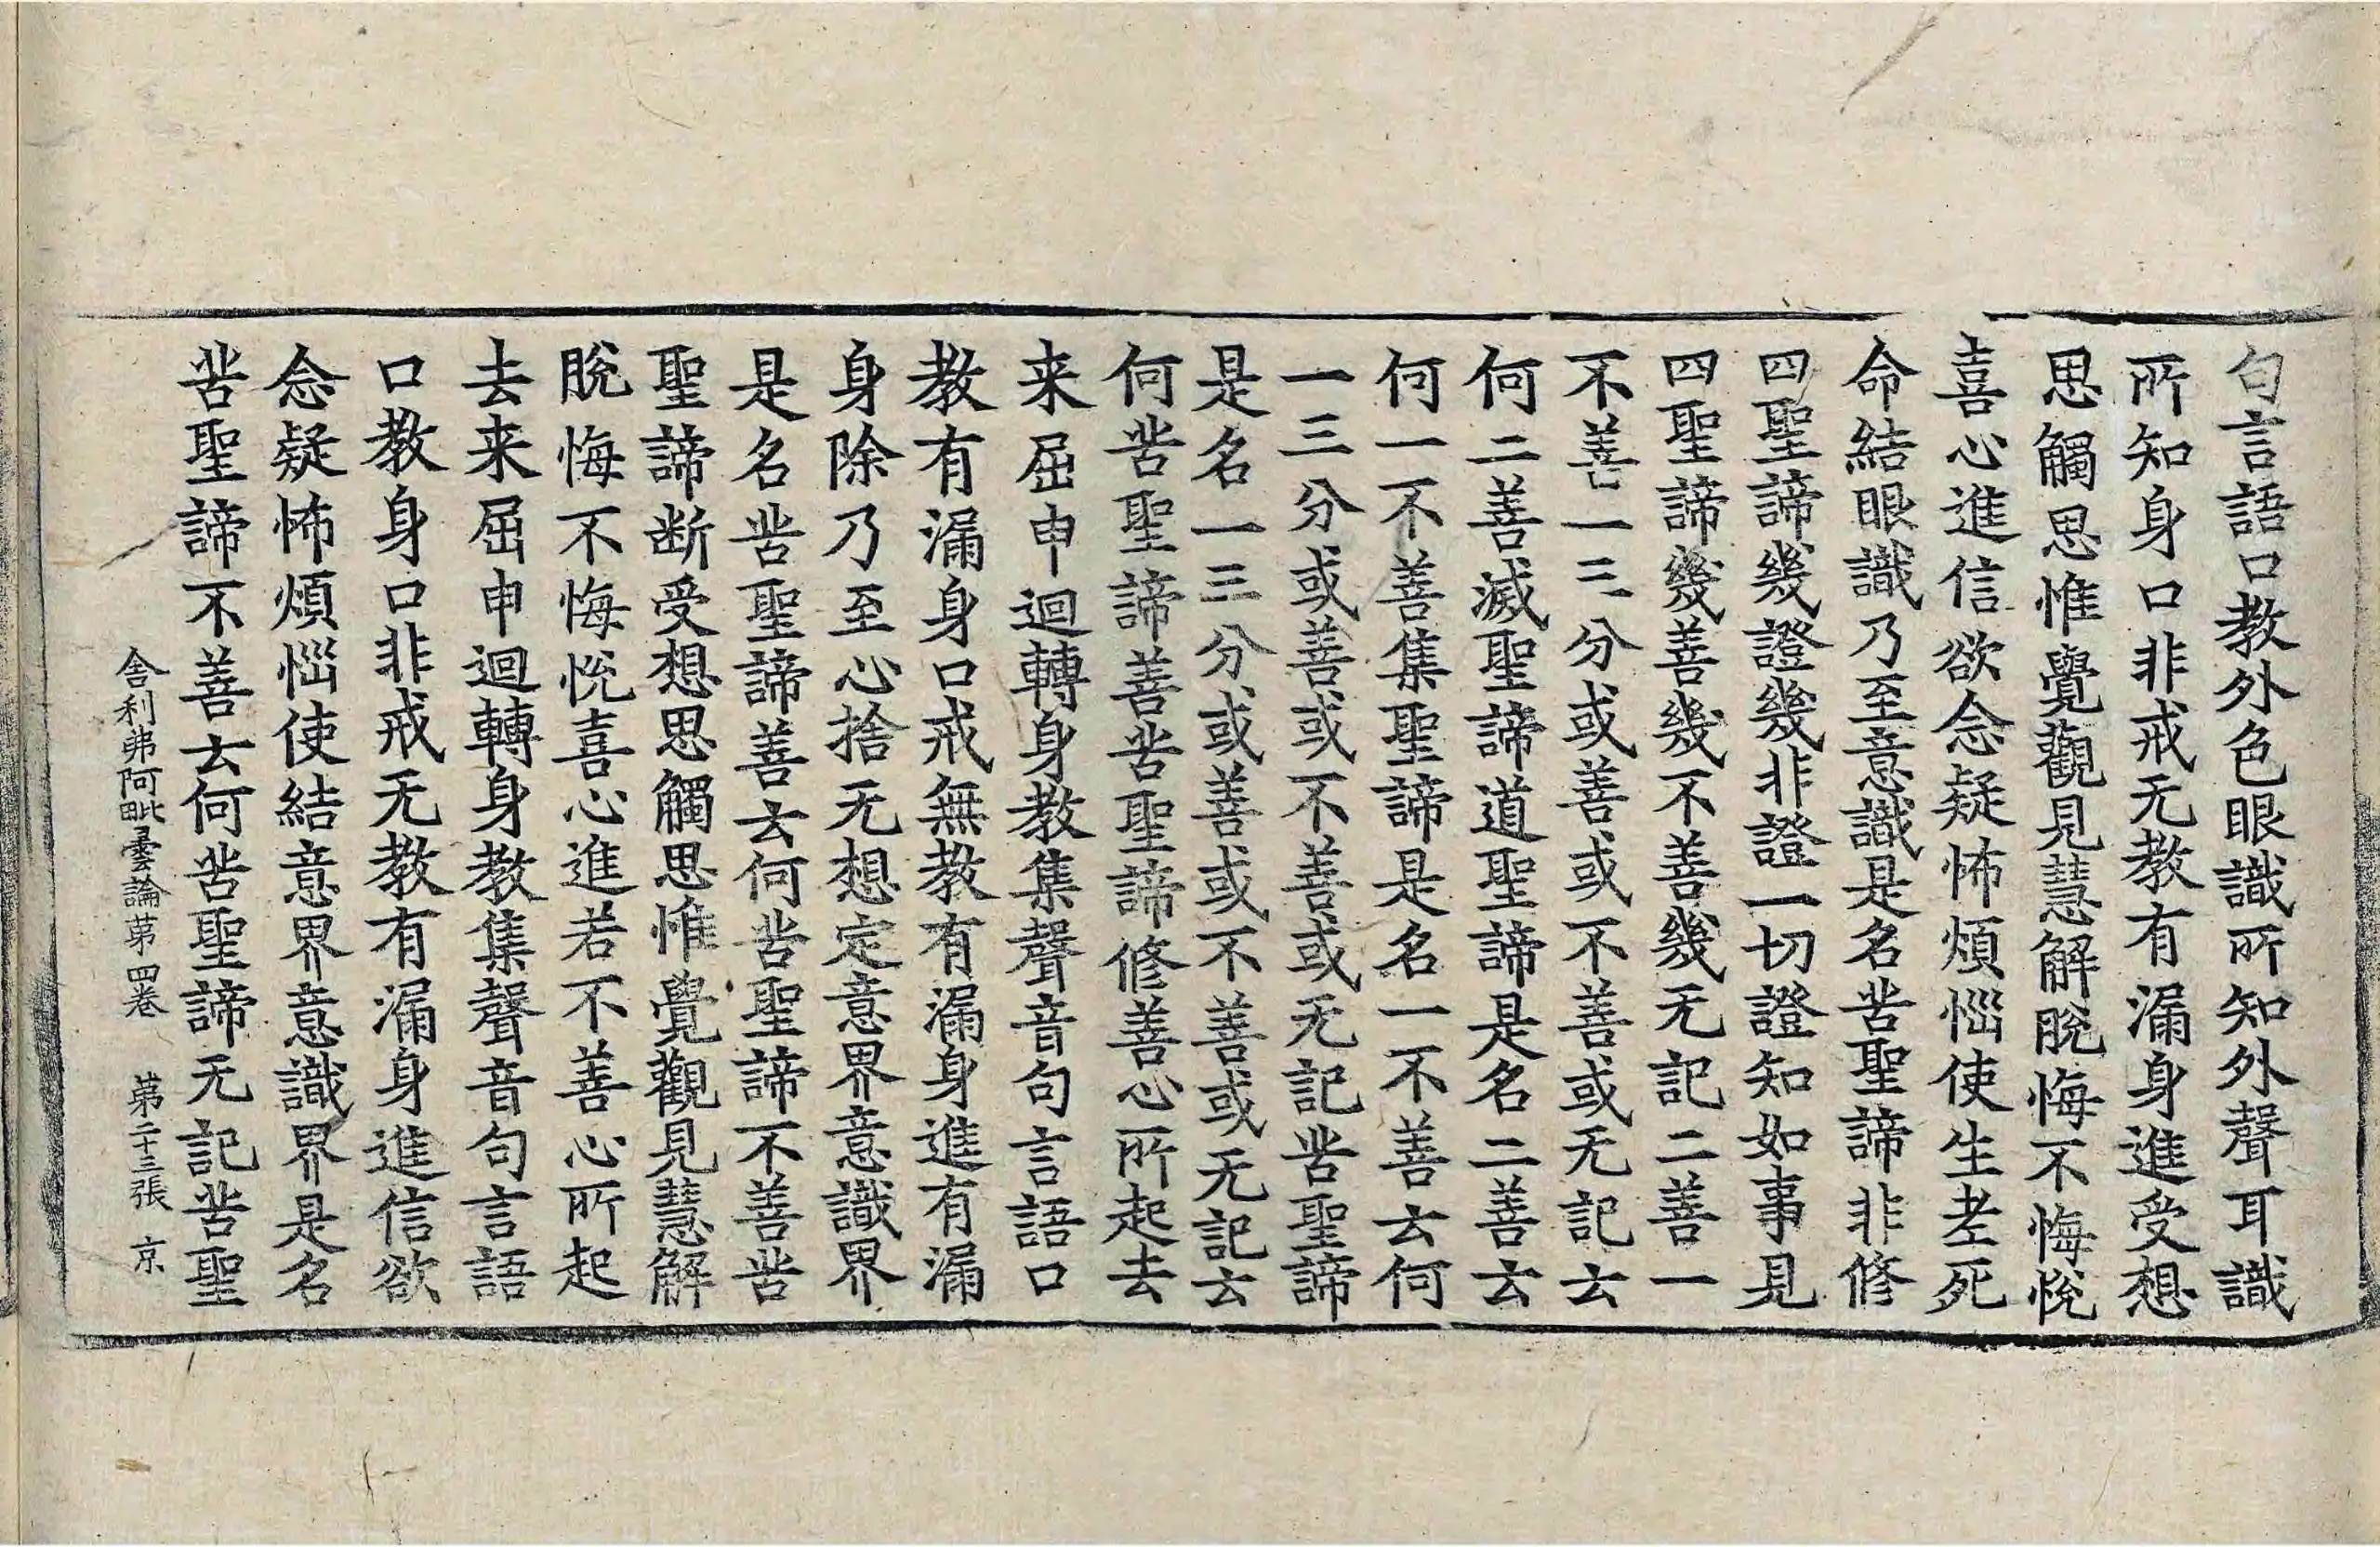 句言語口教外色眼識所知外聲耳識
所知身口非戒无教有漏身進受想
思觸思惟覺觀見慧解脫悔不悔悅
喜心進信欲念疑怖煩惱使生老死
命結眼識乃至意識是名苦聖諦非修
四聖諦幾證幾非證一切證知如事見
四聖諦幾善幾不善幾无記二善一
不善一三分或善或不善或无記云
何二善滅聖諦道聖諦是名二善云
何一不善集聖諦是名一不善云何
一三分或善或不善或无記苦聖諦
是名一三分或善或不善或无記云
何苦聖諦善苦聖諦修善心所起去
来屈申迴轉身教集聲音句言語口
教有漏身口戒無教有漏身進有漏
身除乃至心捨无想定意界意識界
是名苦聖諦善云何苦聖諦不善苦
聖諦断受想思觸思惟覺觀見慧解
脫悔不悔悅喜心進若不善心所起
去来屈申迴轉身教集聲音句言語
口教身口非戒无教有漏身進信欲
念疑怖煩惱使結意界意識界是名
苦聖諦不善云何苦聖諦无記苦聖
舍利弗阿毗曇論苐四卷 苐二十三張 京